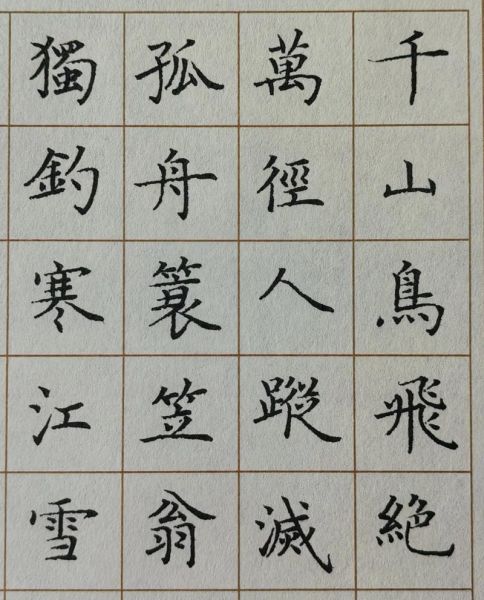 千山鳥飛絕
萬徑人蹤滅
孤舟簑笠翁
獨釣寒江雪